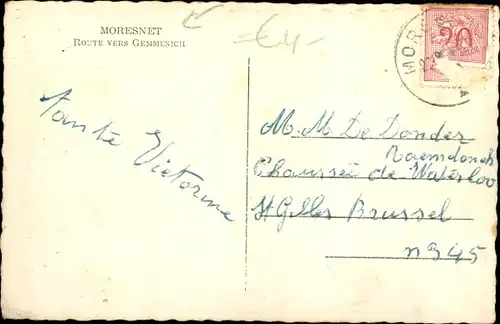 MORESNET
ROUTE VERS GEMMENICH
=€4-
MOR
20
tante Victorine
M. M De Donder
Raemdonck
Chaussée de Waterloo
St Gilles Brussel
n 345